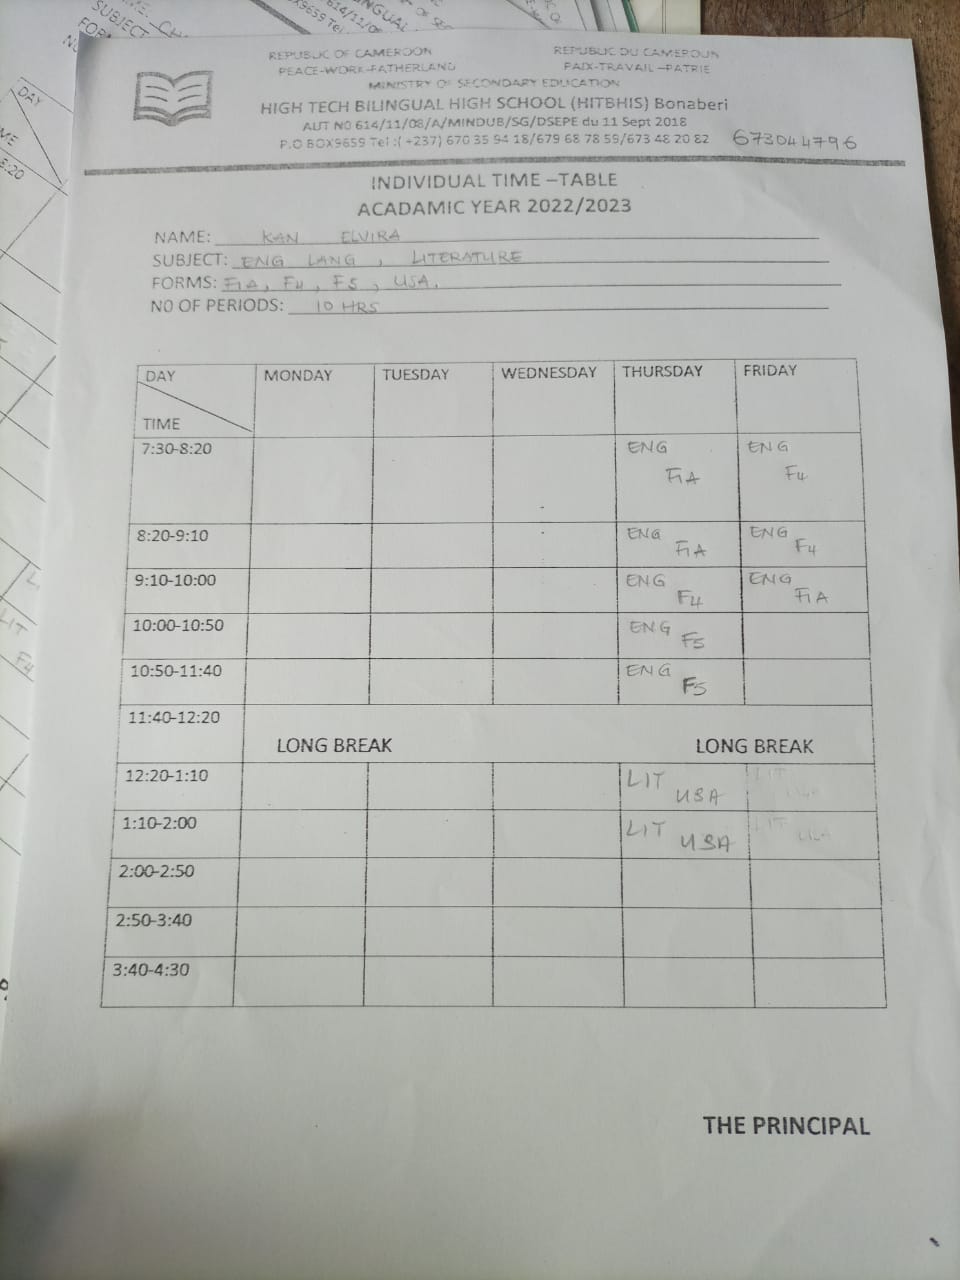 REPUBLIC OF CAMEROON REPUBLIC DU CAMEROUN
PEACE-WORK-FATHERLAND PAIX-TRAVAIL-PATRIE
MINISTRY OF SECONDARY EDUCATION
HIGH TECH BILINGUAL HIGH SCHOOL (HITBHIS) Bonaberi
AUT NO 614/11/08/A/MINDUB/SG/DSEPE du 11 Sept 2018
P.O BOX9659 Tel :( +237) 670 35 94 18/679 68 78 59/673 48 20 82 673044796
INDIVIDUAL TIME –TABLE
ACADAMIC YEAR 2022/2023
NAME: KAN ELVIRA
SUBJECT: ENG LANG , LITERATURE
FORMS: F1A, F4, F5, USA.
NO OF PERIODS: 10 HRS
DAY MONDAY TUESDAY WEDNESDAY THURSDAY FRIDAY
TIME
7:30-8:20 ENG ENG
F1A F4
8:20-9:10 ENG ENG
F1A F4
9:10-10:00 ENG ENG
F4 F1A
10:00-10:50 ENG
F5
10:50-11:40 ENG
F5
11:40-12:20
LONG BREAK LONG BREAK
12:20-1:10 LIT LIT
USA
1:10-2:00 LIT LIT
USA
2:00-2:50
2:50-3:40
3:40-4:30
THE PRINCIPAL
DAY
SUBJECT
LIT
F4